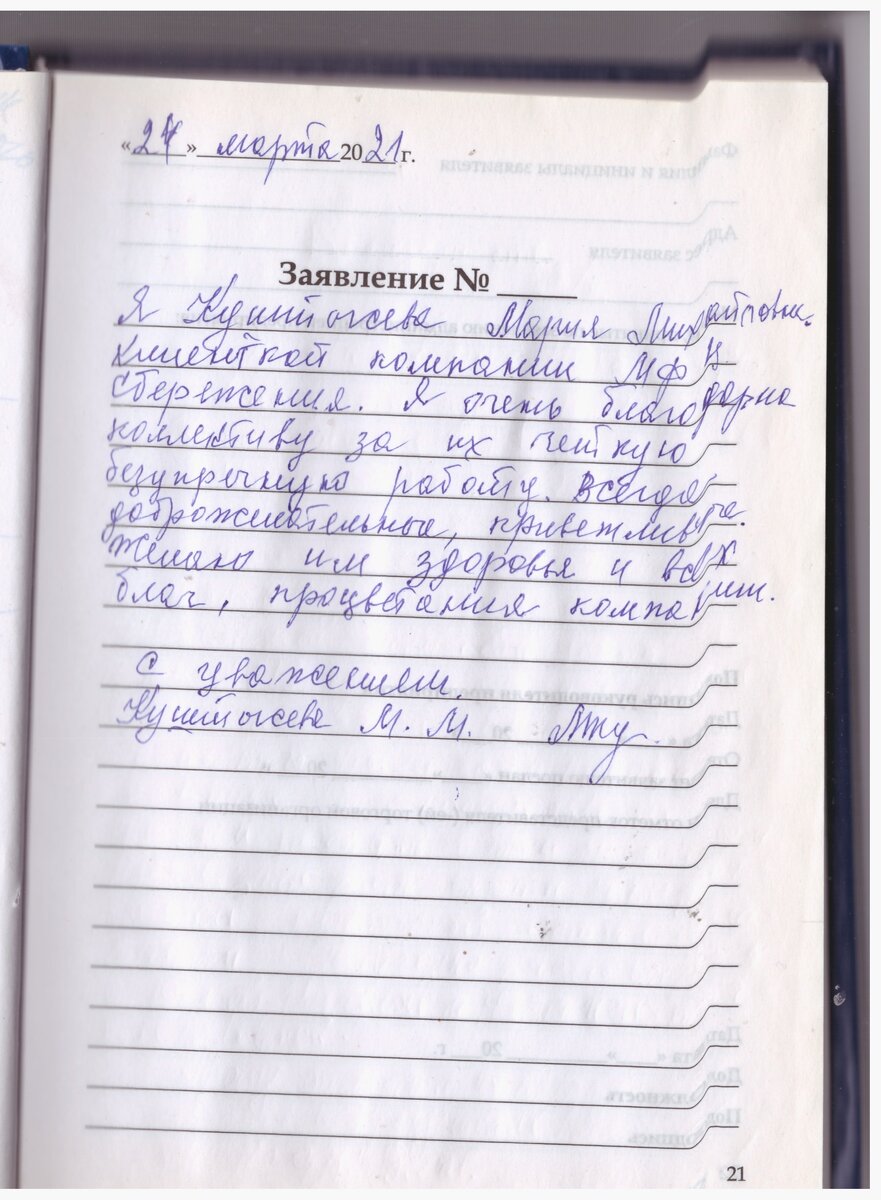 « » марта 2021 г.
Заявление № ____
Я Мария Михайловн.
клиенткой компании МФ Ц
сбережения. Я очень благодарна
коллективу за их четкую
безупречную работу. Всегда
доброжелательные, приветлив
желаю им здоровья и всех
благ, процветания компании.
С уважением.
М. М.
21